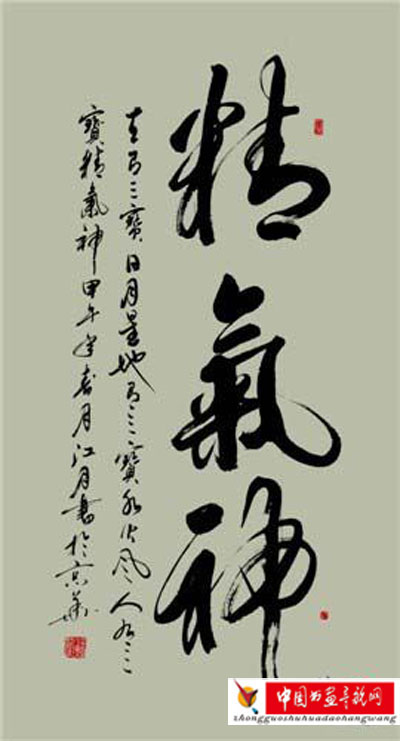 精氣神
天有三寶日月星地有三寶水火風人有三
寶精氣神甲午年春月江月書於京華
中国书画导航网
zhongguoshuhuadaohangwang